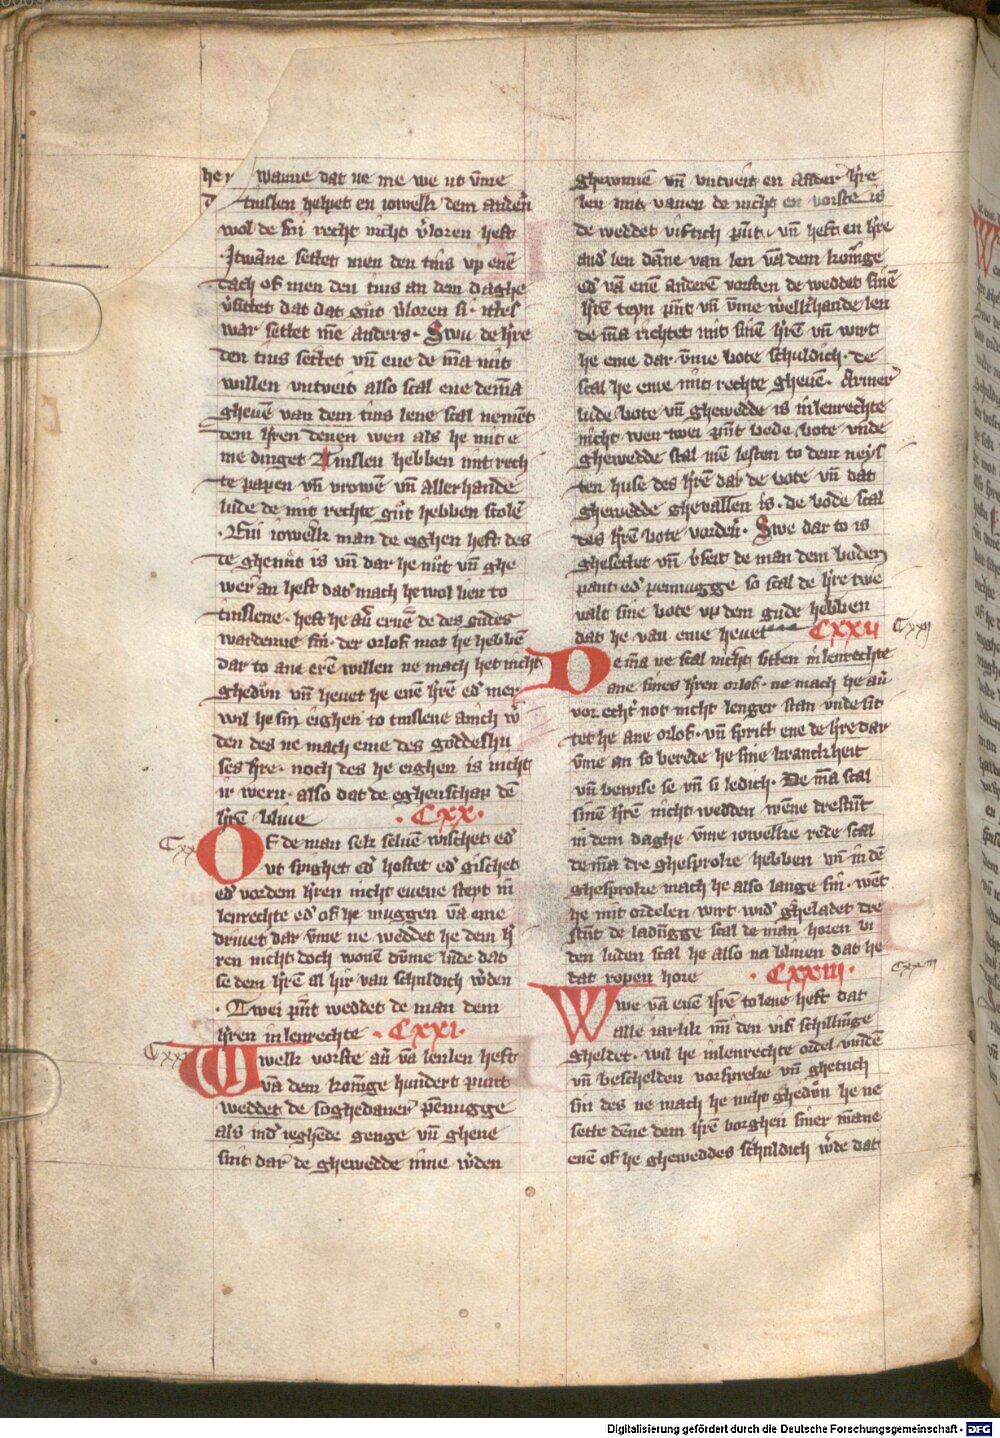 wanne dat ne me we ut v̄me
tinslen helpet en iowelk dem anderē
wol de sin recht nicht v̄loren heft
·Itwāne settet men den tins vp enē
dach of men den tins an dem daghe
v̄sittet dat dat gůt v̄loren si· ittes
war settet mē anders· Swu de hr̄e
den tins settet vn̄ ene de mā mit
willen vntveit also scal ene demā
gheuē van dem tins lene scal nemēt
dem hr̄en denen wen als he mit e
me dinget Tinslen hebben mit rech
te papen vn̄ vrowē vn̄ allerhande
lude de mit rechte gůt hebben scolē
·Ein iowelk man de eighen heft des
te ghenůt is vn̄ dar he nůt vn̄ ghe
wer an heft dat mach he wol lien to
tinslene· heft he au̅ eruē de des gudes
wardende sin· der orlof mos he hebbē
dar to ane erē willen ne mach het nicht
ghedůn vn̄ heuet he enē hr̄ē ed̾ mer
wil he sin eighen to tinslene amich w̾
den des ne mach eme des goddeshu
ses hr̄e· noch des he eighen is nicht
ir wern· also dat de eghenschap dē
hr̄ē bliue ·CXX·
Of de man sek seluē wischet ed̾
vt spighet ed̾ hostet ed̾ gischet
ed̾ vordem hr̄en nicht euene stept in
lenrechte ed̾ of he muggen vā eme
driuet dar v̄me ne weddet he dem h̄
ren nicht doch wonē dūme lude dat
se dem hr̄ē al hir van schuldich w̾den
·Twei pūt weddet de man dem
hr̄en in lenrechte ·CXXI·
Welk vorste au̅ vā lenlen heft
vā dem konīge hundert punt
weddet de soghedaner pēnigge
als ind̾ ieghēde genge vn̄ gheue
sint dar de ghewedde inne w̾den
ghewūnē vn̄ vntveit en ander hr̄e
len mit vanen de nicht en vorste is
de weddet viftich pūt· vn̄ heft en hr̄e
and̾ len dāne van len vā dem konīge
ed̾ vā enē anderē vorsten de weddet sinē
hr̄ē teyn pūt vn̄ v̄me welkerhande len
de mā richtet mit sinē hr̄ē vn̄ wirt
he eme dar v̄me bote schuldich· de
scal he eme mit rechte gheuē· Armer
lude bote vn̄ ghewedde is in lenrechte
nicht wen twei pūt bede bote vnde
ghewedde scal mē lesten to dem neys
ten huse des hr̄ē dar de bote vn̄ dat
ghewedde gheuallen is· de bode scal
des hr̄ē bote vorderē· Swe dar to is
ghesettet vn̄ v̄seit de man dem boden
pant ed̾ pennigge so scal de hr̄e twe
ualt sine bote vp dem gude hebben
dat he van eme heuet CXXII Cxxii
De mā ne scal nicht sitten in lenrechte
ane sines hr̄en orlof· ne mach he au̅
vor echt not nicht lenger stan vnde sit
tet he ane orlof· vn̄ sprikt ene de hr̄e dar
v̄me an so berede he sine krancheit
vn̄ bewise se vn̄ si ledich· De mā scal
sinē hr̄ē nicht wedden wēne drestūt
in dem daghe v̄me iowelke rede scal
de mā dre ghesproke hebben vn̄ in dē
ghesproke mach he also lange sin· wēt
he mit ordelen wirt wid̾ gheladet dre
stūt de ladūgge scal de man horen vī
den luden scal he also na bliuen dat he
dat ropen hore ·CXXIII· Cxxiii
Swe vā enē hr̄ē to lene heft dat
alle iarlik mī den vif schillinge
gheldet· wil he in lenrechte ordel vinden
vn̄ beschelden vorspreke vn̄ ghetuch
sin des ne mach he nicht ghedůn he ne
sette dēne dem hr̄ē borghen siner māne
enē of he gheweddes schuldich w̾de dat